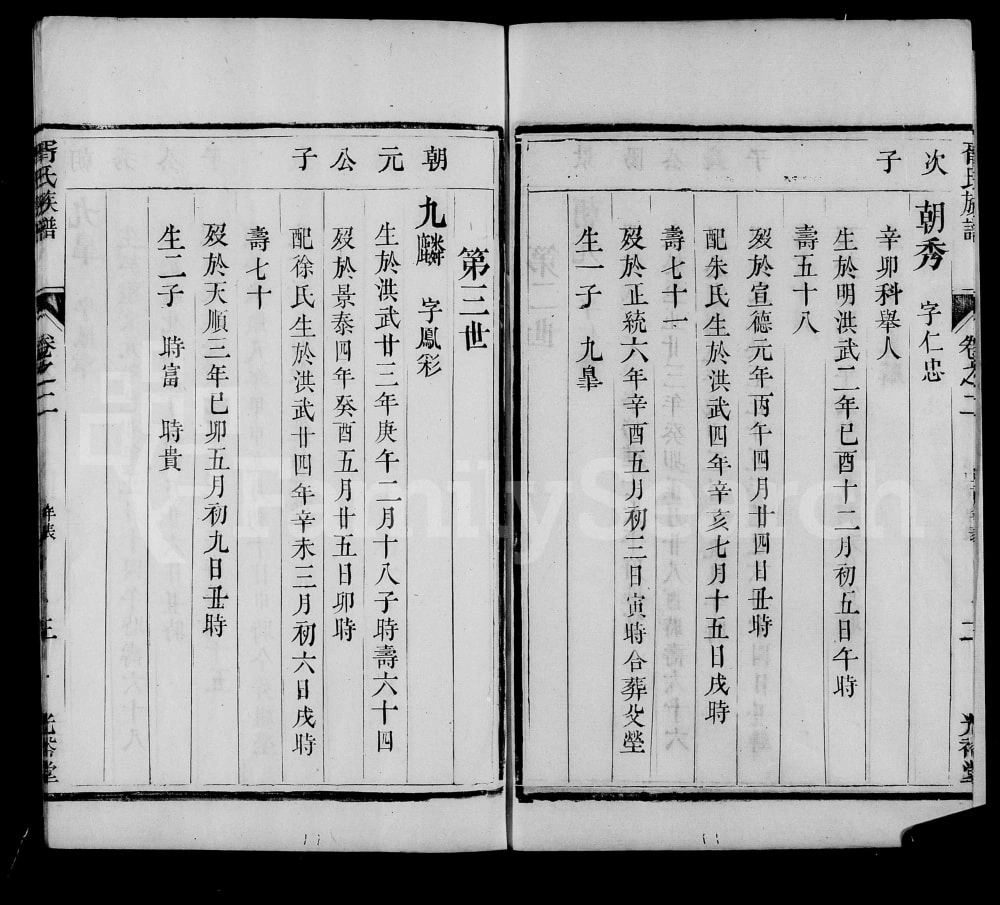 胥氏族譜 卷之二 二 光裕堂
次子
朝秀 字仁忠
辛卯科舉人
生於明洪武二年己酉十二月初五日午時
壽五十八
歿於宣德元年丙午四月廿四日丑時
配朱氏生於洪武四年辛亥七月十五日戌時
壽七十一
歿於正統六年辛酉五月初三日寅時合葬父塋
生一子 九臯
第三世
朝元公子
九麟 字鳳彩
生於洪武廿三年庚午二月十八子時壽六十四
歿於景泰四年癸酉五月廿五日卯時
配徐氏生於洪武廿四年辛未三月初六日戌時
壽七十
歿於天順三年己卯五月初九日丑時
生二子 時富 時貴
胥氏族譜 卷之二 年表 三 光裕堂
FamilySearch